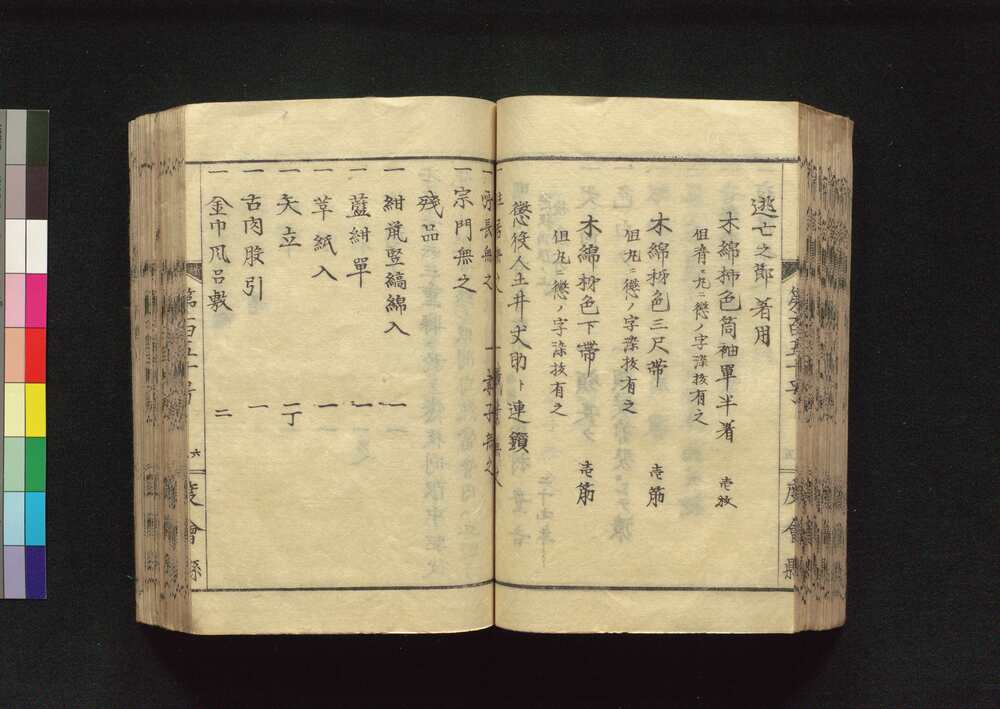 逃亡之節着用
木綿柿色筒袖單半着 壱枚
但背ニ丸ニ懲ノ字染抜有之
木綿柿色三尺帯 壱筋
但丸ニ懲ノ字染抜有之
木綿柿色下帯 壱筋
但丸ニ懲ノ字染抜有之
懲役人土井丈助ト連鎖
一 宗門無之
残品
一 紺 竪縞綿入 一
一 藍紺單 一
一 草紙入 一
一 矢立 一丁
一 古肉股引 一
一 金巾風呂敷 二
第百五十号
六
度會縣